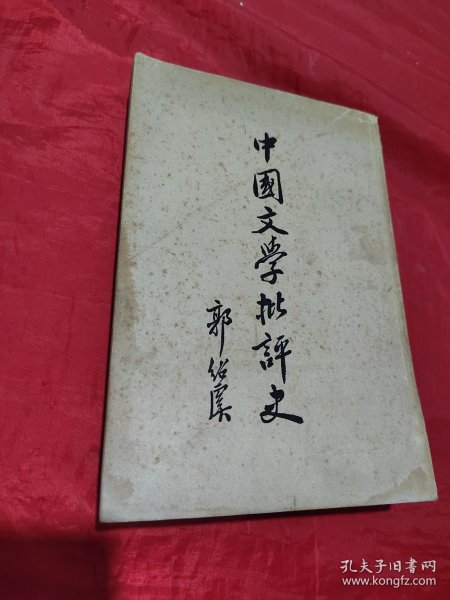 中國文學批評史
郭绍虞
孔夫子旧书网
www.kongfz.com